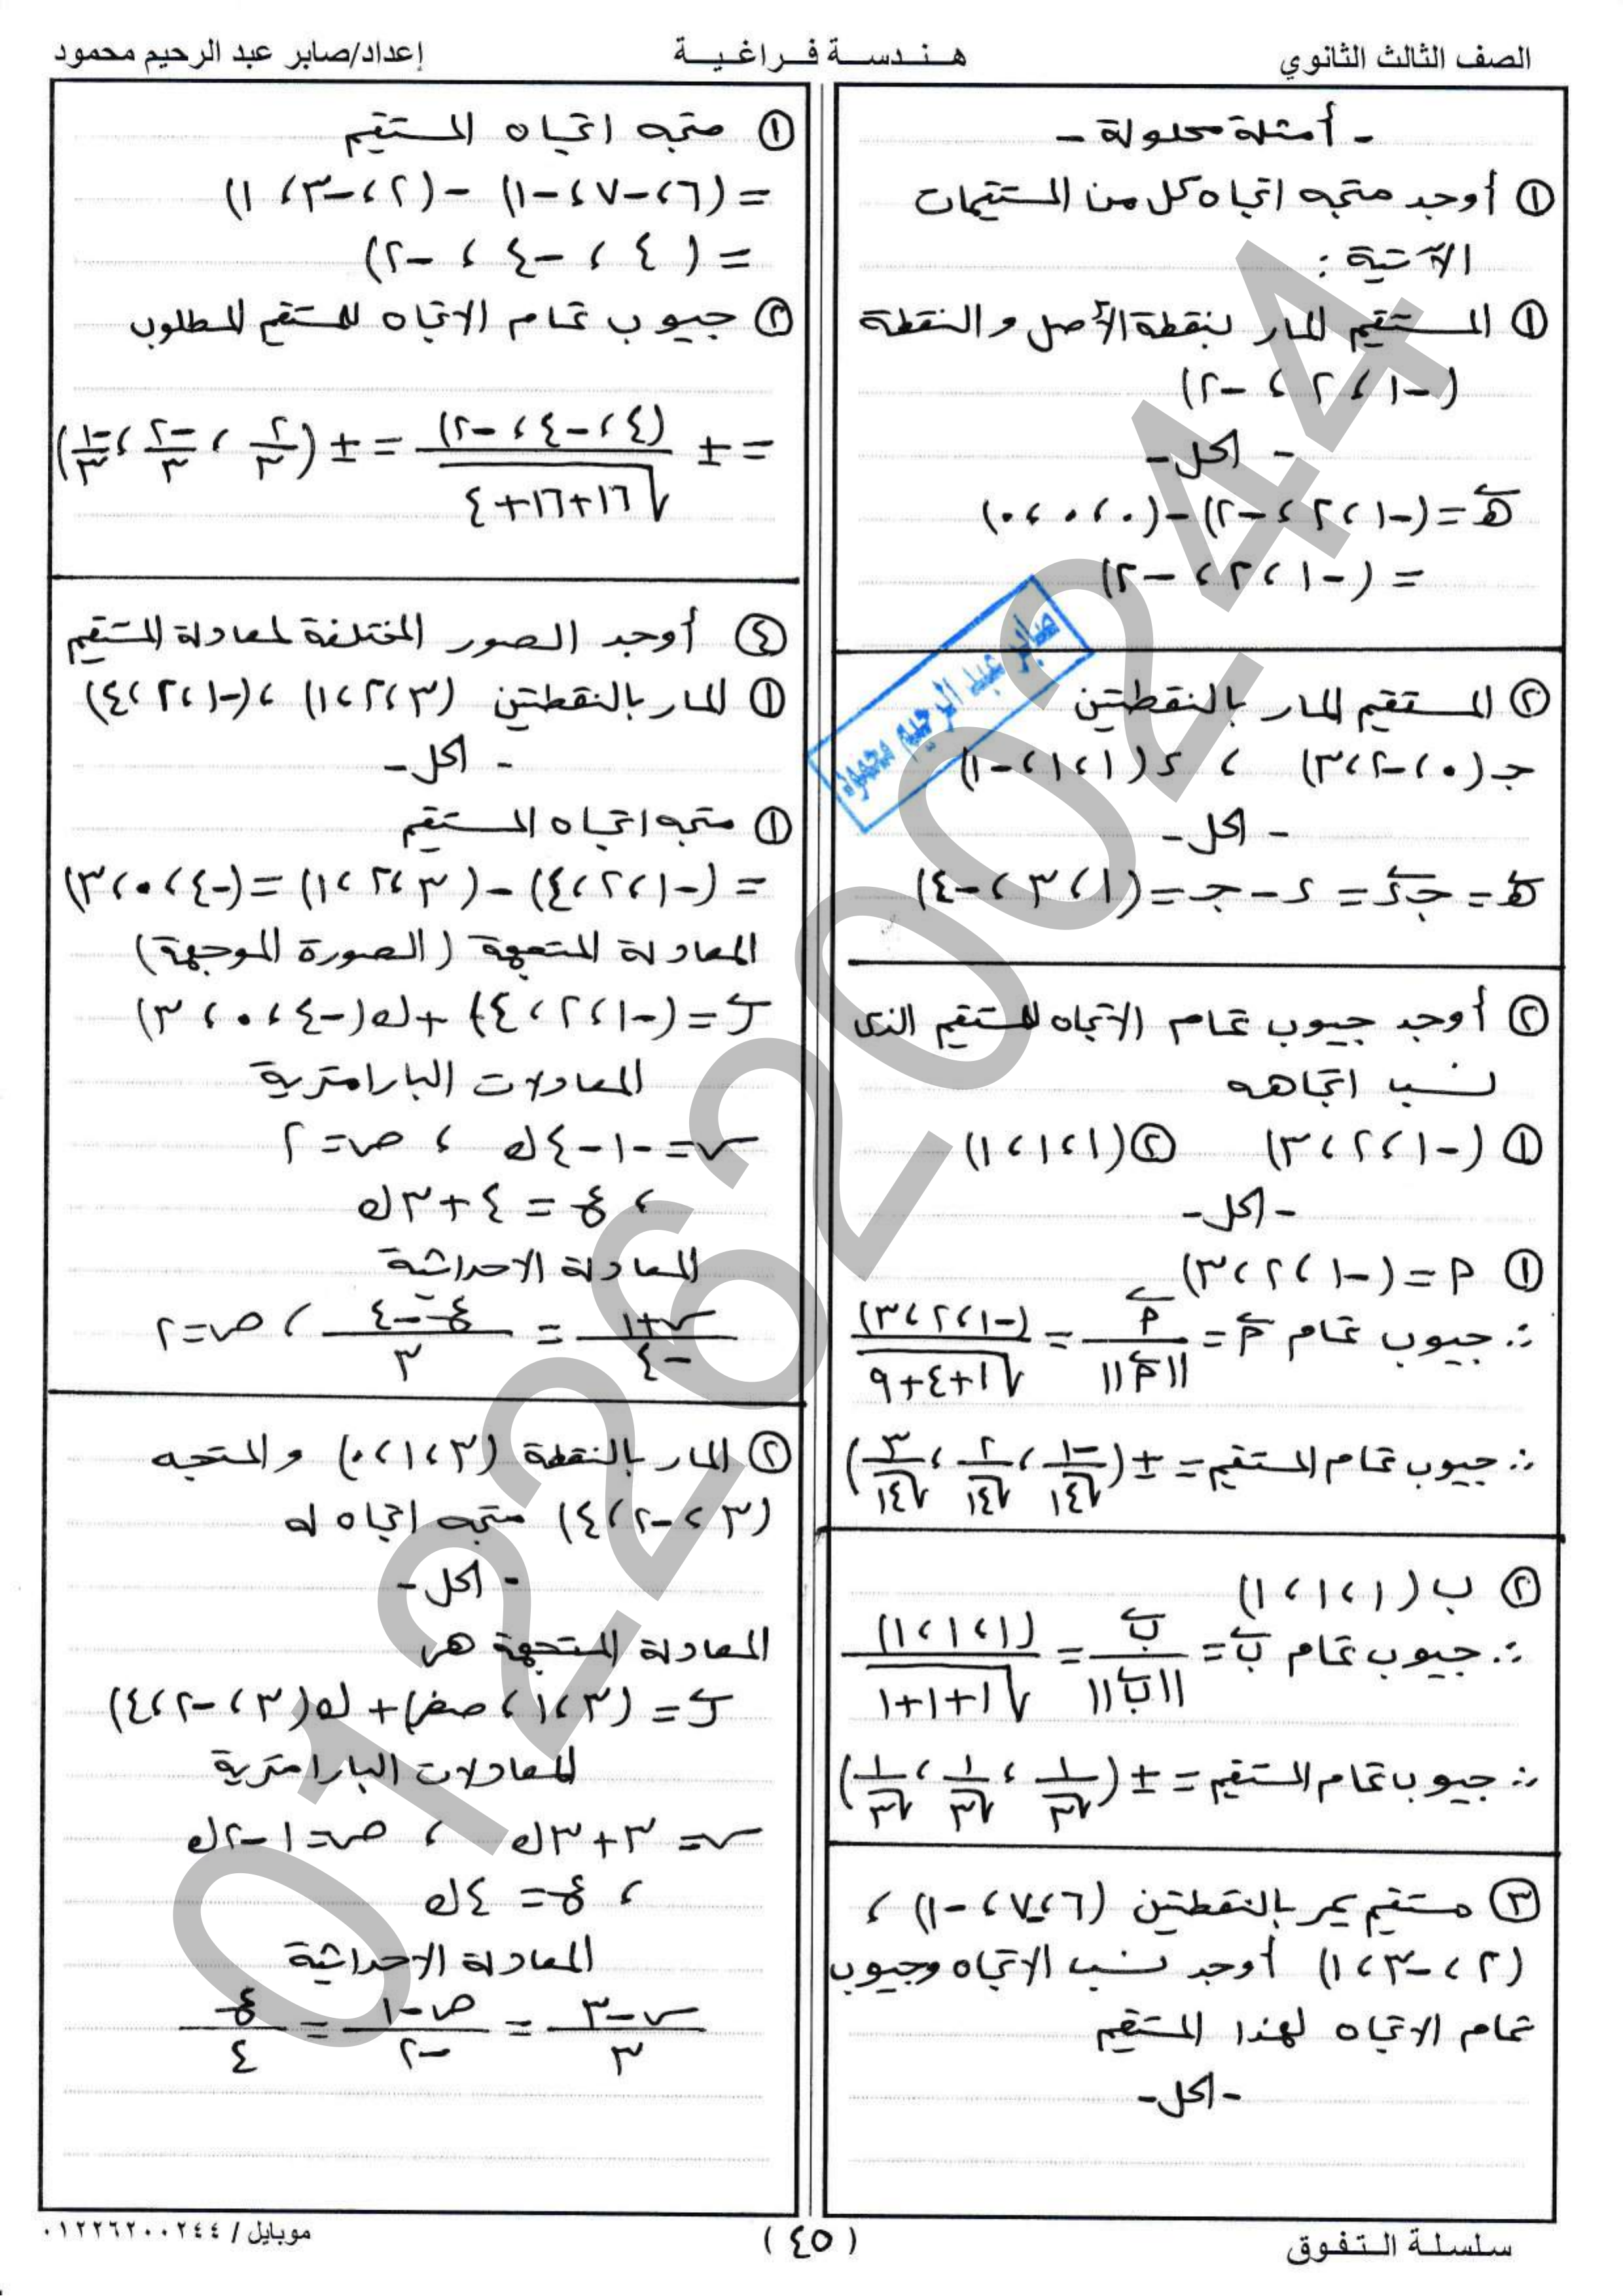 الصف الثالث الثانوي
هندسة فراغية
إعداد/صابر عبد الرحيم محمود
- أمثلة محلولة -
① أوجد متجه اتجاه كل من المستقيمات
الآتية :
① المستقيم المار بنقطة الأصل والنقطة
(-١، ٢، -٢)
- الحل -
هـ = (-١، ٢، -٢) - (٠، ٠، ٠)
= (-١، ٢، -٢)
② المستقيم المار بالنقطتين
جـ (٠، -٢، ٣) ، د (١، ١، -١)
- الحل -
هـ = جـ د = د - جـ = (١، ٣، -٤)
② أوجد جيوب تمام الاتجاه للمستقيم الذى
نسب اتجاهه
① (-١، ٢، ٣) ② (١، ١، ١)
- الحل -
① أ = (-١، ٢، ٣)
∴ جيوب تمام أ = أ / ||أ|| = (-١، ٢، ٣) / √(١+٤+٩)
∴ جيوب تمام المستقيم = ± (-١/√١٤، ٢/√١٤، ٣/√١٤)
② ب (١، ١، ١)
∴ جيوب تمام ب = ب / ||ب|| = (١، ١، ١) / √(١+١+١)
∴ جيوب تمام المستقيم = ± (١/√٣، ١/√٣، ١/√٣)
③ مستقيم يمر بالنقطتين (٦، -٧، -١) ،
(٢، -٣، ١) أوجد نسب الاتجاه وجيوب
تمام الاتجاه لهذا المستقيم
- الحل -
① متجه اتجاه المستقيم
= (٦، -٧، -١) - (٢، -٣، ١)
= (٤، -٤، -٢)
② جيوب تمام الاتجاه للمستقيم المطلوب
= ± (٤، -٤، -٢) / √(١٦+١٦+٤) = ± (٢/٣، -٢/٣، -١/٣)
④ أوجد الصور المختلفة لمعادلة المستقيم
① المار بالنقطتين (٣، ٢، ١) ، (-١، ٢، ٤)
- الحل -
① متجه اتجاه المستقيم
= (-١، ٢، ٤) - (٣، ٢، ١) = (-٤، ٠، ٣)
المعادلة المتجهة (الصورة الموجهة)
ر = (-١، ٢، ٤) + ك (-٤، ٠، ٣)
المعادلات البارامترية
س = -١ - ٤ك ، ص = ٢
، ع = ٤ + ٣ك
المعادلة الاحداثية
س+١ / -٤ = ع-٤ / ٣ ، ص = ٢
② المار بالنقطة (٣، ١، ٠) والمتجه
(٣، -٢، ٤) متجه اتجاه له
- الحل -
المعادلة المتجهة هى
ر = (٣، ١، صفر) + ك (٣، -٢، ٤)
المعادلات البارامترية
س = ٣ + ٣ك ، ص = ١ - ٢ك
، ع = ٤ك
المعادلة الاحداثية
س-٣ / ٣ = ص-١ / -٢ = ع / ٤
صابر عبد الرحيم محمود
01226200244
سلسلة التفوق
(٤٥)
موبايل / ٠١٢٢٦٢٠٠٢٤٤